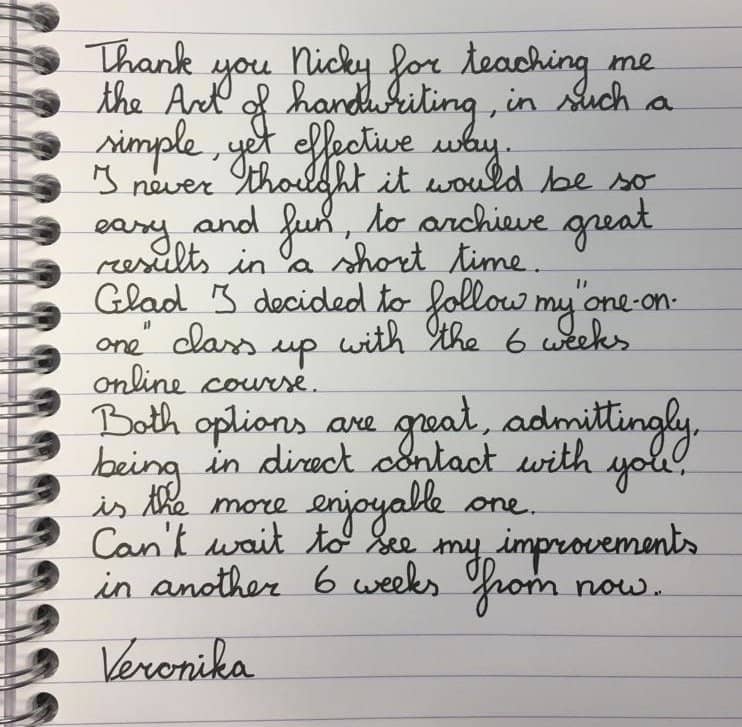 Thank you Nicky for teaching me
the Art of handwriting, in such a
simple, yet effective way.
I never thought it would be so
easy and fun, to archieve great
results in a short time.
Glad I decided to follow my "one-on-
one" class up with the 6 weeks
online course.
Both options are great, admittingly,
being in direct contact with you,
is the more enjoyable one.
Can't wait to see my improvements
in another 6 weeks from now..
Veronika